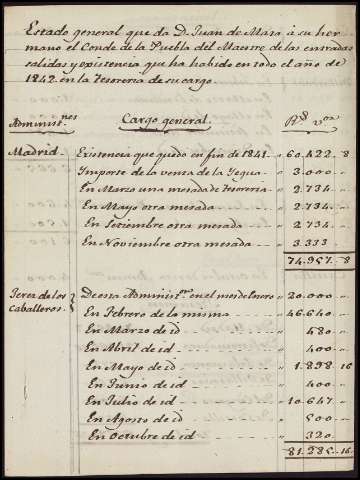 Estado general que da D. Juan de Mata à su her
mano el Conde de la Puebla del Maestre de las entradas
salidas y existencia que ha habido en todo el año de
1842 en la Tesoreria de su cargo.
Administ.nes Cargo general. Rs. von
Madrid. Existencia que quedo en fin de 1841. 60.422 . 8
Ymporte de la venta de la Yegua. 3.000 "
En Marzo una mesada de Tesoreria. 2.734 "
En Mayo otra mesada 2.734 "
En Setiembre otra mesada 2.734 "
En Noviembre otra mesada 3.333
74.957 . 8
Jerez de los De esta Administ.on en el mes de Enero 20.000 "
Caballeros. En Febrero de la misma 46.640 "
En Marzo de id 480 "
En Abril de id 400 "
En Mayo de id 1.898 16
En Junio de id 400 "
En Julio de id 10.647 "
En Agosto de id 500 "
En Octubre de id 320
81.285 . 16